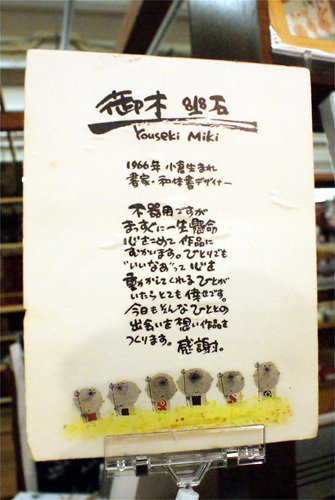 御木 幽石
Youseki Miki
1966年 小倉生まれ
書家・和体書デザイナー
不器用ですが
まっすぐに一生懸命
心をこめて作品に
むかいます。ひとりでも
"いいなあ"って心を
動かしてくれるひとが
いたらとても倖せです。
今日もそんなひととの
出会いを想い作品を
つくります。感謝。